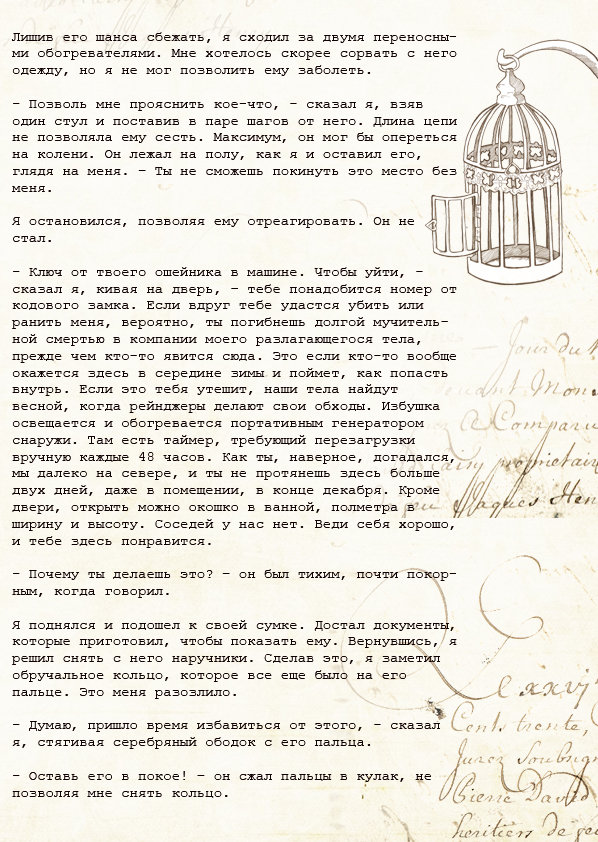 Лишив его шанса сбежать, я сходил за двумя переносны-
ми обогревателями. Мне хотелось скорее сорвать с него
одежду, но я не мог позволить ему заболеть.
– Позволь мне прояснить кое-что, – сказал я, взяв
один стул и поставив в паре шагов от него. Длина цепи
не позволяла ему сесть. Максимум, он мог бы опереться
на колени. Он лежал на полу, как я и оставил его,
глядя на меня. – Ты не сможешь покинуть это место без
меня.
Я остановился, позволяя ему отреагировать. Он не
стал.
– Ключ от твоего ошейника в машине. Чтобы уйти, –
сказал я, кивая на дверь, – тебе понадобится номер от
кодового замка. Если вдруг тебе удастся убить или
ранить меня, вероятно, ты погибнешь долгой мучитель-
ной смертью в компании моего разлагающегося тела,
прежде чем кто-то явится сюда. Это если кто-то вообще
окажется здесь в середине зимы и поймет, как попасть
внутрь. Если это тебя утешит, наши тела найдут
весной, когда рейнджеры делают свои обходы. Избушка
освещается и обогревается портативным генератором
снаружи. Там есть таймер, требующий перезагрузки
вручную каждые 48 часов. Как ты, наверное, догадался,
мы далеко на севере, и ты не протянешь здесь больше
двух дней, даже в помещении, в конце декабря. Кроме
двери, открыть можно окошко в ванной, полметра в
ширину и высоту. Соседей у нас нет. Веди себя хорошо,
и тебе здесь понравится.
– Почему ты делаешь это? – он был тихим, почти покор-
ным, когда говорил.
Я поднялся и подошел к своей сумке. Достал документы,
которые приготовил, чтобы показать ему. Вернувшись, я
решил снять с него наручники. Сделав это, я заметил
обручальное кольцо, которое все еще было на его
пальце. Это меня разозлило.
– Думаю, пришло время избавиться от этого, – сказал
я, стягивая серебряный ободок с его пальца.
– Оставь его в покое! – он сжал пальцы в кулак, не
позволяя мне снять кольцо.
Jour du
Mon
Comparu
proprietair
Jacques Hen
xxvj
Cent trente,
Jurer
Pierre David
heritiers de